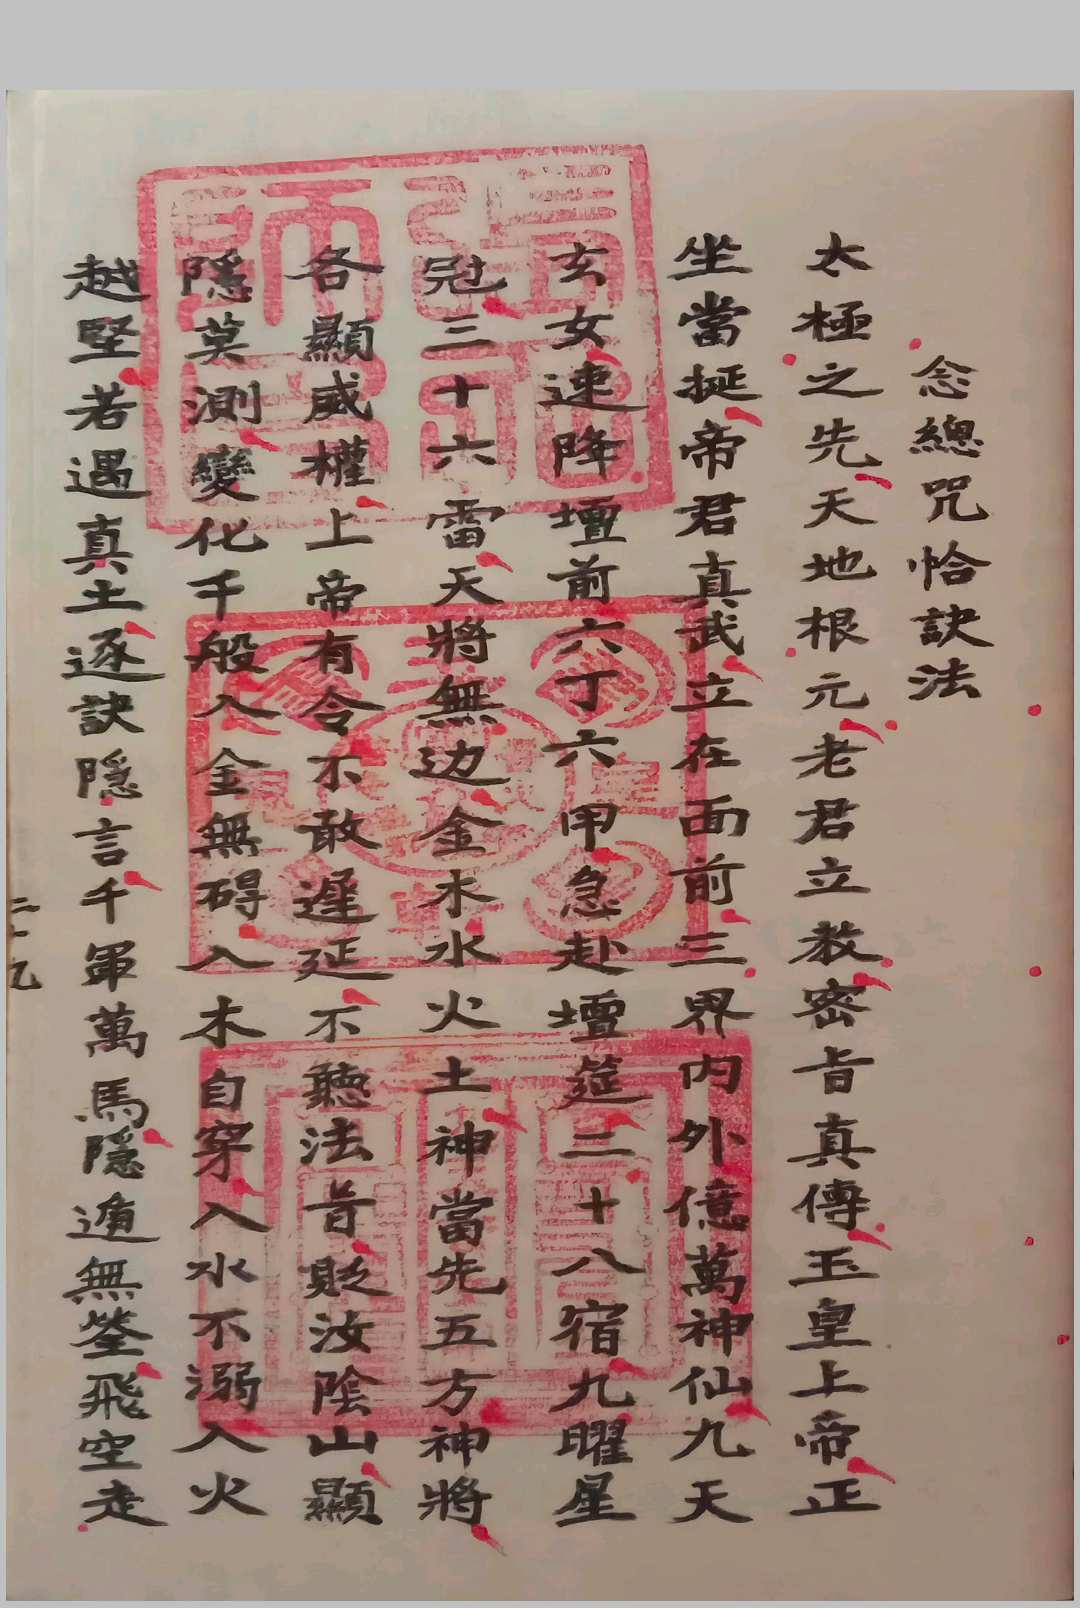 念總咒恰訣法
太極之先天地根元老君立教密旨真傳玉皇上帝正
坐當挻帝君真武立在面前三界内外億萬神仙九天
玄女速降壇前六丁六甲急赴壇筵二十八宿九曜星
冠三十六雷天將無边金木水火土神當先五方神將
各顯威權上帝有令不敢遲延不聽法旨貶汝陰山顯
隱莫測變化千般入金無碍入木自穿入水不溺入火
越堅若遇真土逐訣隱言千軍萬馬隱遁無瑩飛空走
二十九